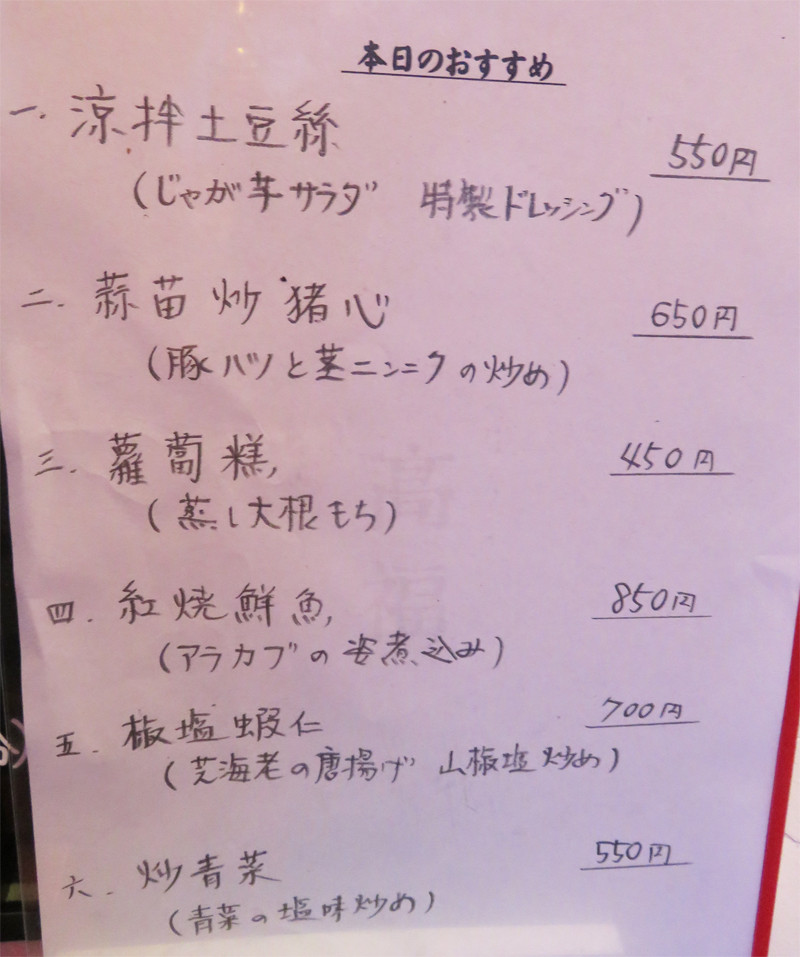 本日のおすすめ
一. 涼拌土豆絲 550円
(じゃが芋サラダ 特製ドレッシング)
二. 蒜苗炒猪心 650円
(豚ハツと茎ニンニクの炒め)
三. 蘿蔔糕, 450円
(蒸し大根もち)
四. 紅焼鮮魚, 850円
(アラカブの姿煮込み)
五. 椒塩蝦仁 700円
(芝海老の唐揚げ 山椒塩炒め)
六. 炒青菜 550円
(青菜の塩味炒め)